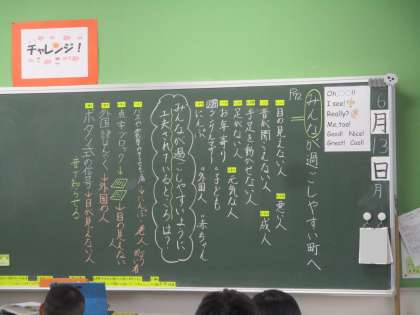 チャレンジ！
Oh,○○!!
I see!
Really?
Me,too!
Good! Nice!
Great! Cool!
6
月
13
日
月
P.12
みんなが過ごしやすい町へ
目の見えない人
悪い人
音が聞こえない人
成人
手足を動かせない人
足がない人
元気な人
お年寄り
子ども
外国人
赤ちゃん
みんなが過ごしやすいように
工夫されているところは？
点字ブロック→
→目の見えない人
→外国の人
ボタン式の信号→目が見えない人
音で知らせる